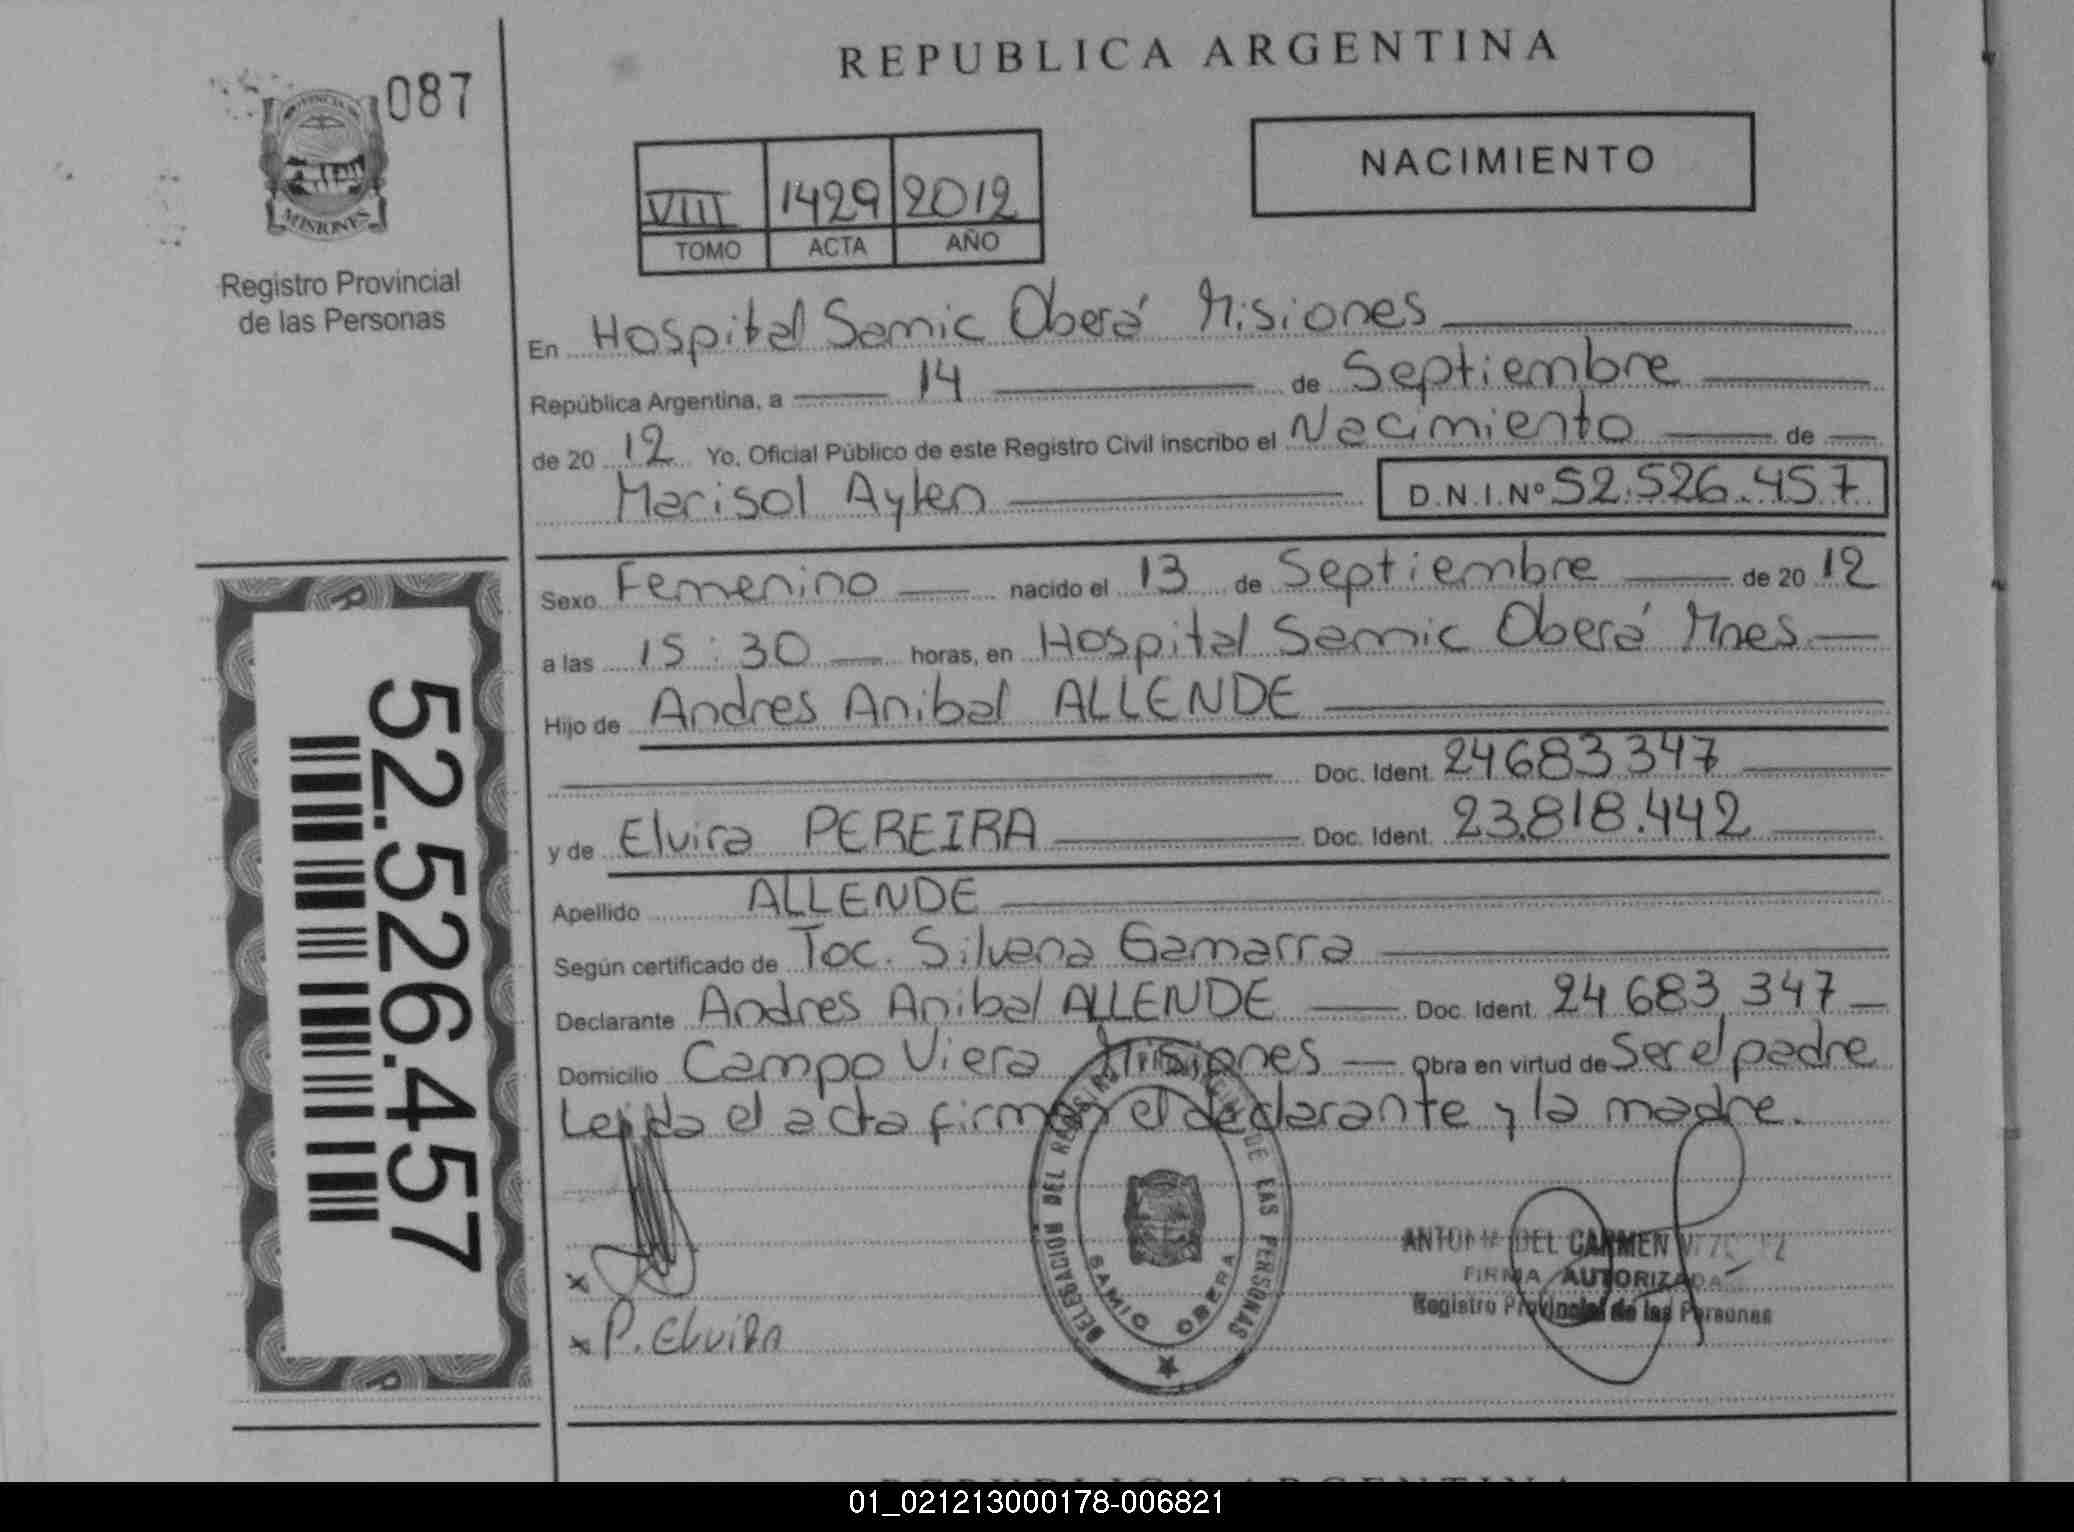 REPUBLICA ARGENTINA
087
PROVINCIA DE
MISIONES
Registro Provincial
de las Personas
NACIMIENTO
VIII 1429 2012
TOMO ACTA AÑO
En Hospital Samic Oberá Misiones
República Argentina, a 14 de Septiembre
de 20 12 Yo, Oficial Público de este Registro Civil inscribo el Nacimiento de
Marisol Aylen D.N.I.Nº 52.526.457
Sexo Femenino nacido el 13 de Septiembre de 20 12
a las 15:30 horas, en Hospital Samic Oberá Mnes
Hijo de Andres Anibal ALLENDE
Doc. Ident. 24683347
y de Elvira PEREIRA Doc. Ident. 23.818.442
Apellido ALLENDE
Según certificado de Toc. Silvana Gamarra
Declarante Andres Anibal ALLENDE Doc. Ident. 24 683 347
Domicilio Campo Viera Misiones Obra en virtud de Ser el padre
Leida el acta firman el declarante y la madre.
52.526.457
x
x P. Elvira
DELEGACION DEL REGISTRO PROVINCIAL DE LAS PERSONAS
SAMIC OBERA
ANTONIA DEL CARMEN
FIRMA AUTORIZADA
Registro Provincial de las Personas
REPUBLICA ARGENTINA
01_021213000178-006821